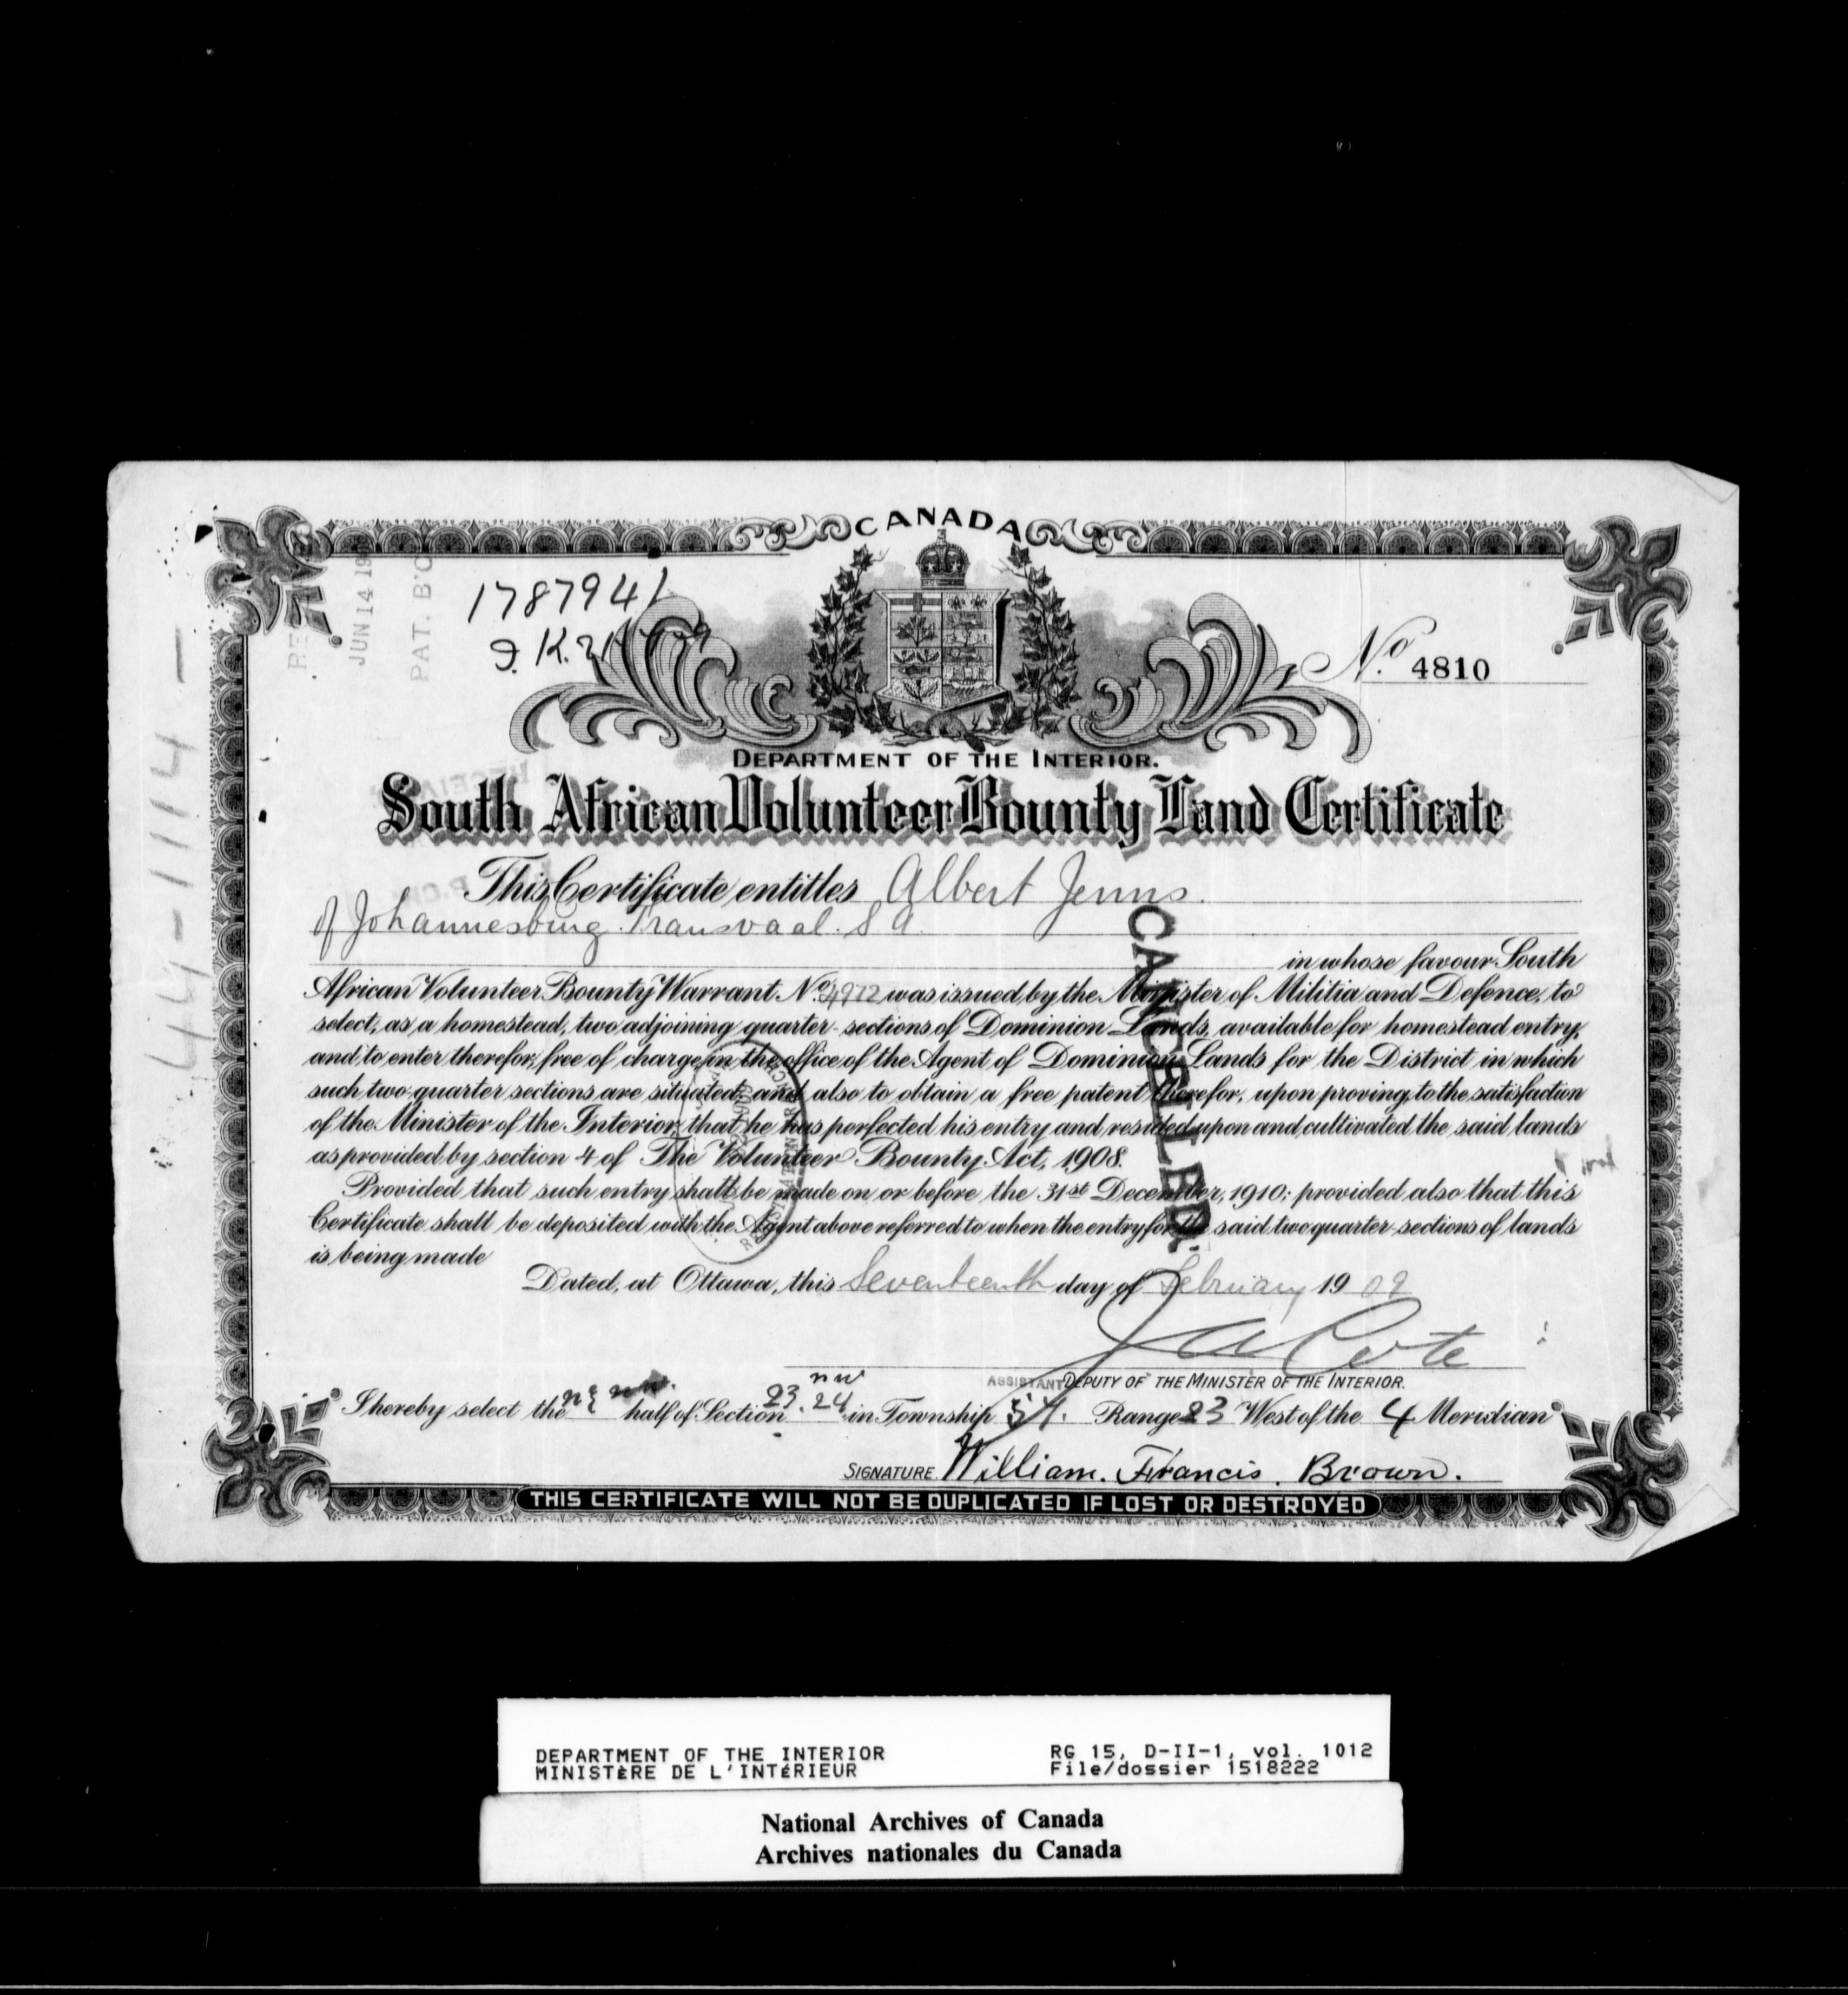 CANADA
1787941
No. 4810
JUN 14 19
PAT. B'
DEPARTMENT OF THE INTERIOR.
South African Volunteer Bounty Land Certificate
This Certificate entitles Albert Jenns.
of Johannesburg. Transvaal. S A.
in whose favour South
African Volunteer Bounty Warrant No. 4972 was issued by the Minister of Militia and Defence, to
select, as a homestead, two adjoining quarter-sections of Dominion Lands, available for homestead entry,
and to enter therefor, free of charge, in the office of the Agent of Dominion Lands for the District in which
such two quarter sections are situated; and also to obtain a free patent therefor, upon proving to the satisfaction
of the Minister of the Interior that he has perfected his entry and resided upon and cultivated the said lands
as provided by section 4 of The Volunteer Bounty Act, 1908.
Provided that such entry shall be made on or before the 31st December, 1910; provided also that this
Certificate shall be deposited with the Agent above referred to when the entry for the said two quarter-sections of lands
is being made
Dated, at Ottawa, this Seventeenth day of February 1909
J A Cote
ASSISTANT DEPUTY OF THE MINISTER OF THE INTERIOR.
nw
I hereby select the n½ half of Section 23. 24 in Township 57. Range 23 West of the 4 Meridian
SIGNATURE. William. Francis. Brown.
THIS CERTIFICATE WILL NOT BE DUPLICATED IF LOST OR DESTROYED
CANCELLED.
44-1114-
DEPARTMENT OF THE INTERIOR
MINISTÈRE DE L'INTÉRIEUR
RG 15, D-II-1, vol. 1012
File/dossier 1518222
National Archives of Canada
Archives nationales du Canada